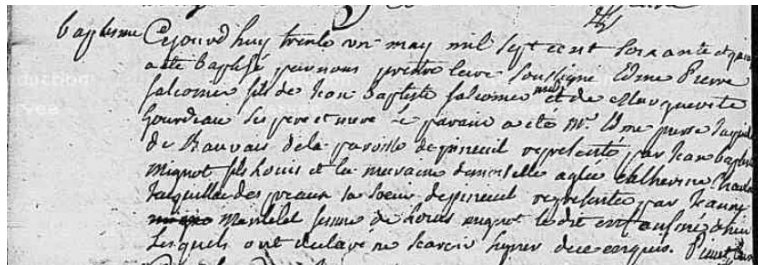 baptesme Cejourdhuy trente un may mil sept cent soixante et
a été baptisé par nous prestre curé soussigné Edme Pierre
falconier fils de Jean Baptiste falconier et de Marguerite
Gourdeau ses pere et mere le parain a été Mr. Edme pierre
de Bauvais de la paroisse depineuil representé par Jean baptiste
mignot fils Louis et la maraine demoiselle agte Catherine
Jaquillat des preaux sa soeur depineuil representé par Jeanne
Mantelet femme de Louis mignot le dit enfant né d'hier
Lesquels ont declaré ne scavoir signer de ce enquis.